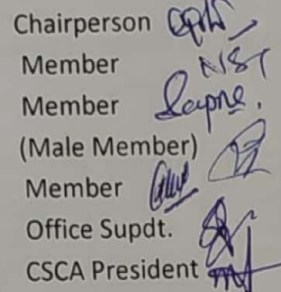 Chairperson
Member NST
Member Sapna.
(Male Member)
Member
Office Supdt.
CSCA President